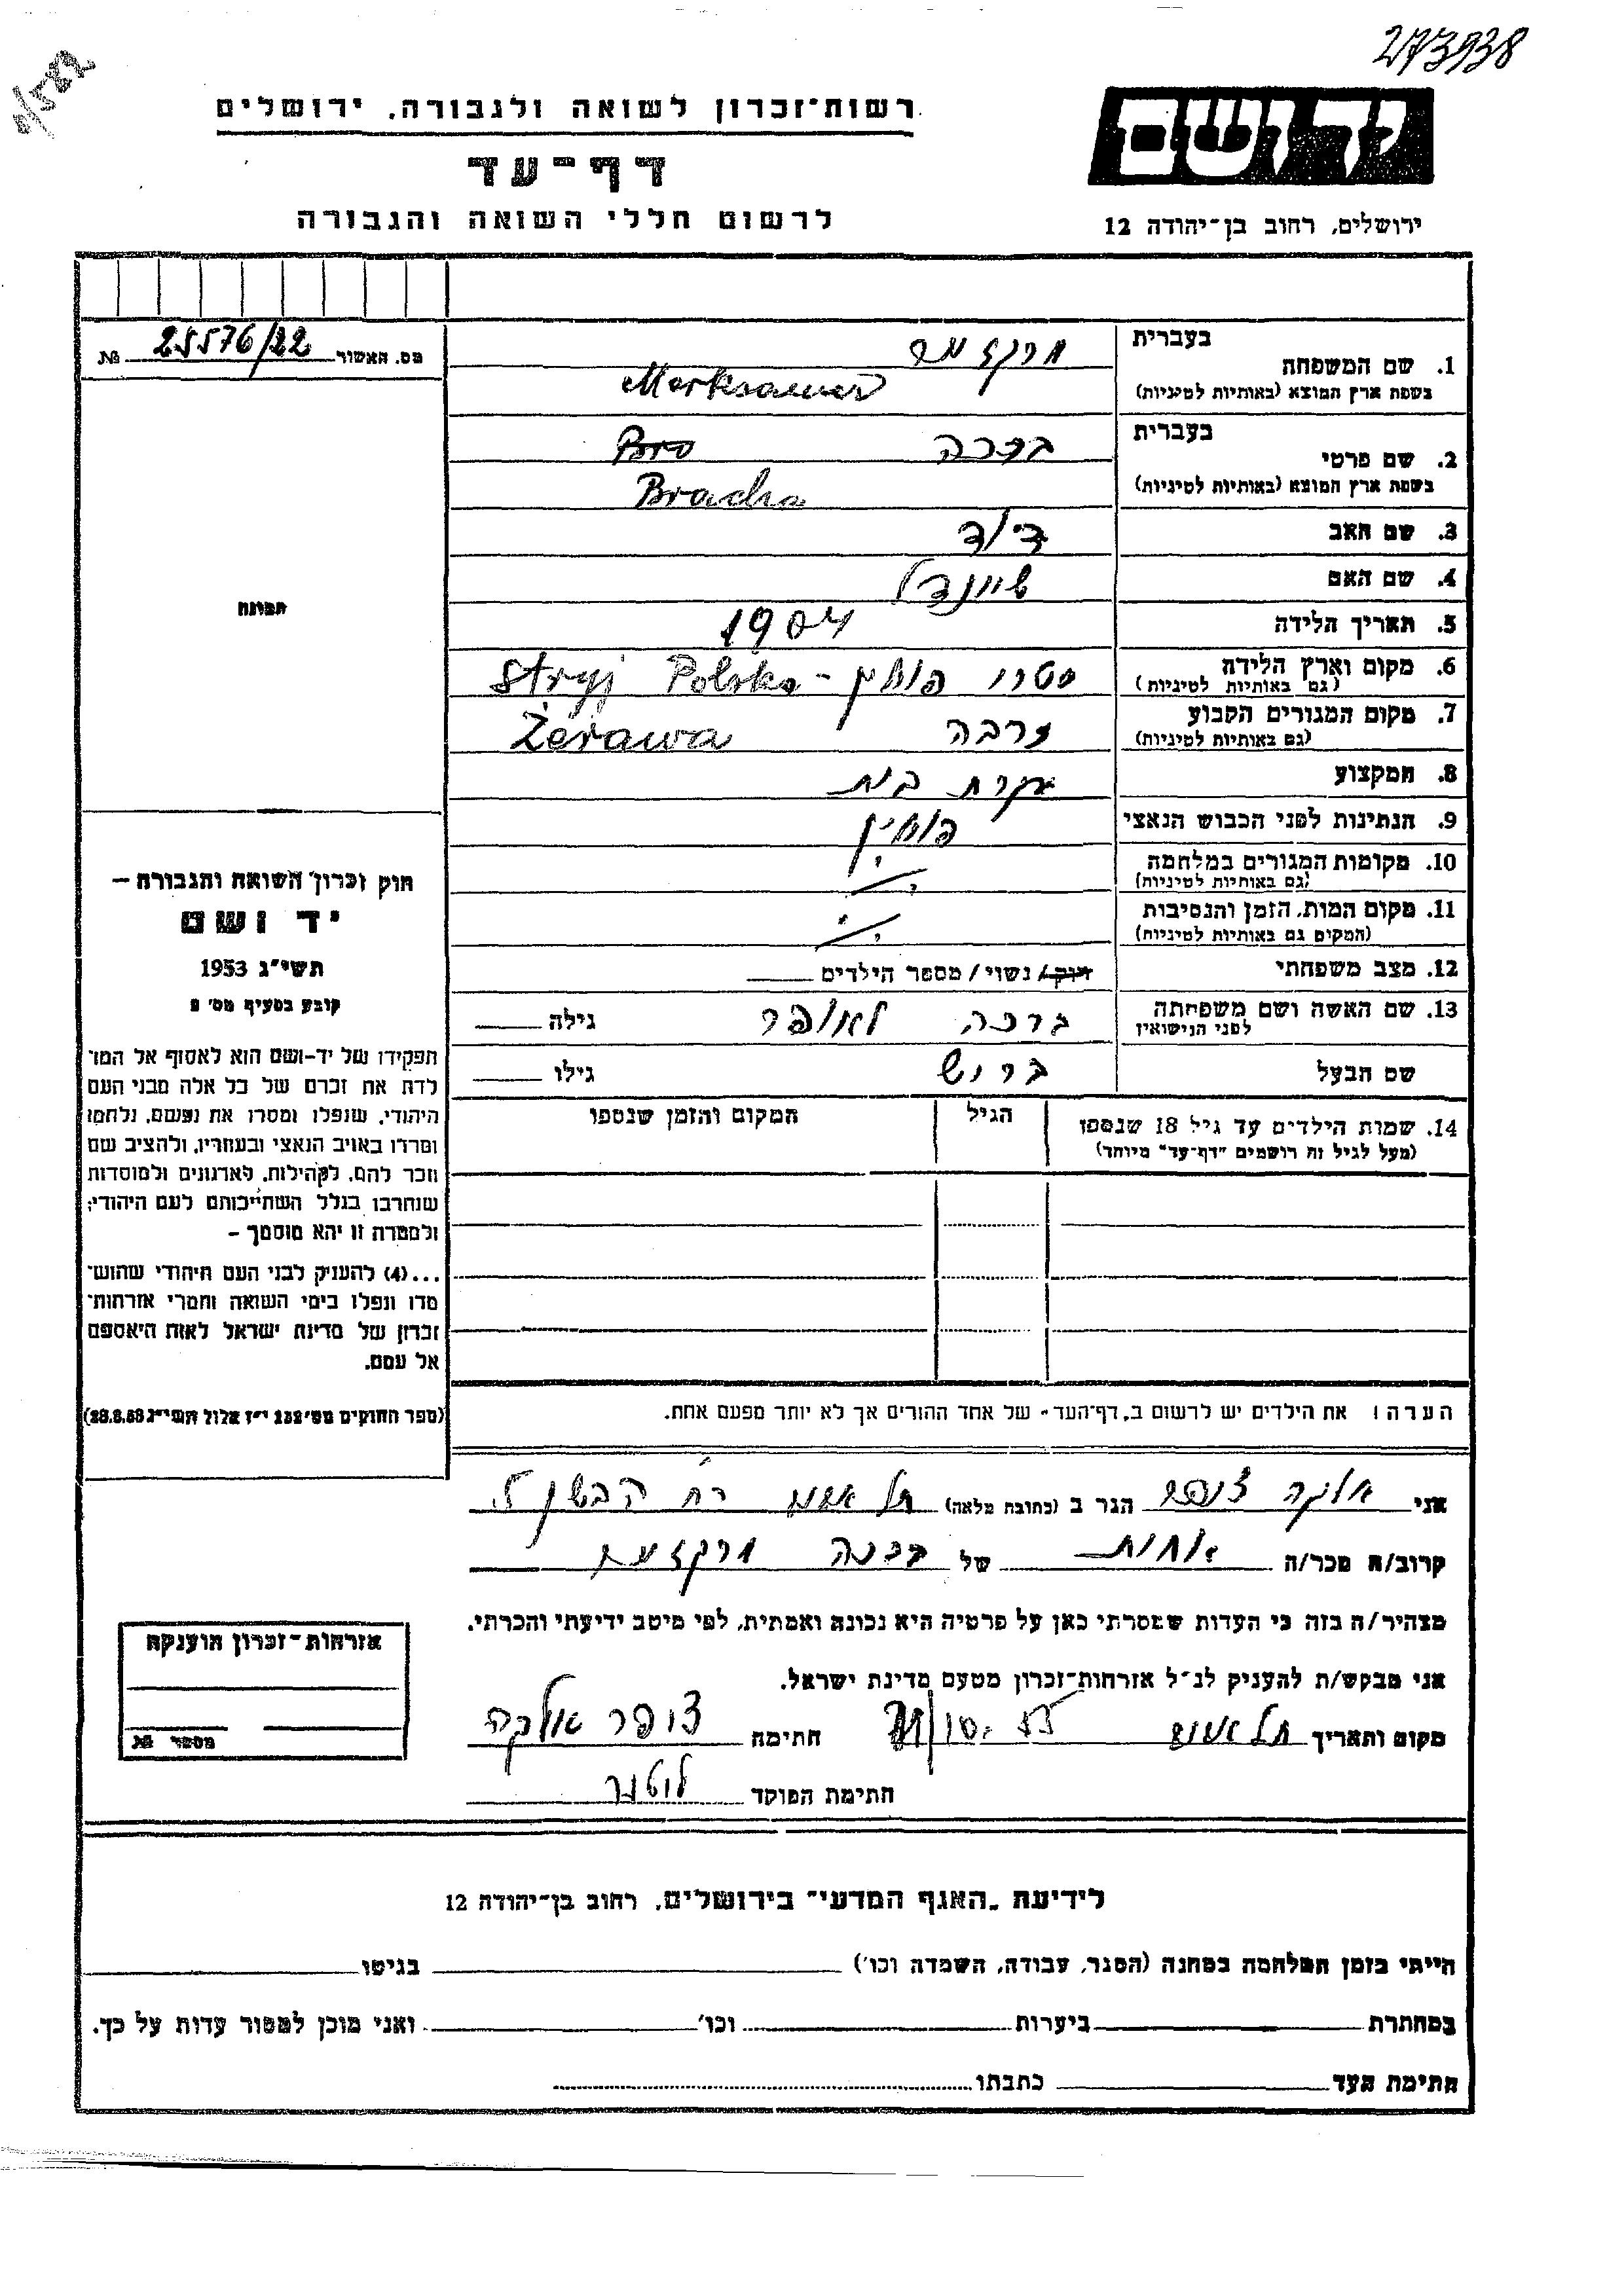 273938
רשות־זכרון לשואה ולגבורה, ירושלים
יד ושם
דף־עד
לרשום חללי השואה והגבורה
ירושלים, רחוב בן־יהודה 12
מס. האשור 25576/22 №
בעברית
1. שם המשפחה
בשפת ארץ המוצא (באותיות לטיניות)
בעברית ברכה Bro
2. שם פרטי
בשפת ארץ המוצא (באותיות לטיניות) Bracha
3. שם האב דוד
4. שם האם שיינדל
5. תאריך הלידה 1904
6. מקום וארץ הלידה סטרי פולין - Stryj Polska
(גם באותיות לטיניות)
7. מקום המגורים הקבוע Żerawa
(גם באותיות לטיניות)
8. המקצוע עקרת בית
9. הנתינות לפני הכבוש הנאצי פולין
10. מקומות המגורים במלחמה
(גם באותיות לטיניות)
11. מקום המות, הזמן והנסיבות
(המקום גם באותיות לטיניות)
12. מצב משפחתי רוק/ נשוי / מספר הילדים
13. שם האשה ושם משפחתה ברכה לאופר גילה
לפני הנישואין
שם הבעל ברוש גילו
14. שמות הילדים עד גיל 18 שנספו הגיל המקום והזמן שנספו
(מעל לגיל זה רושמים "דף־עד" מיוחד)
הערה: את הילדים יש לרשום ב„דף־העד" של אחד ההורים אך לא יותר מפעם אחת.
תמונה
חוק זכרון השואה והגבורה –
יד ושם
תשי"ג 1953
קובע בסעיף מס' 2
תפקידו של יד-ושם הוא לאסוף אל המו־
לדת את זכרם של כל אלה מבני העם
היהודי, שנפלו ומסרו את נפשם, נלחמו
ומרדו באויב הנאצי ובעוזריו, ולהציב שם
וזכר להם, לקהילות, לארגונים ולמוסדות
שנחרבו בגלל השתייכותם לעם היהודי;
ולמטרה זו יהא מוסמך –
...(4) להעניק לבני העם היהודי שהוש־
מדו ונפלו בימי השואה והמרי אזרחות־
זכרון של מדינת ישראל לאות היאספם
אל עמם.
(ספר החוקים מס' 132 י"ז אלול תשי"ג 28.8.53)
אני הגר ב (כתובת מלאה) תל אביב רח'
קרוב/ה מכר/ה אחות של ברכה
מצהיר/ה בזה כי העדות שמסרתי כאן על פרטיה היא נכונה ואמתית, לפי מיטב ידיעתי והכרתי.
אני מבקש/ת להעניק לנ"ל אזרחות־זכרון מטעם מדינת ישראל.
מקום ותאריך תל אביב חתימה
חתימת הפוקד
אזרחות־זכרון הוענקה
מספר №
לידיעת „האגף המדעי" בירושלים, רחוב בן־יהודה 12
הייתי בזמן המלחמה במחנה (הסגר, עבודה, השמדה וכו') בגיטו
במחתרת ביערות וכו' ואני מוכן למסור עדות על כך.
חתימת העד כתבתו